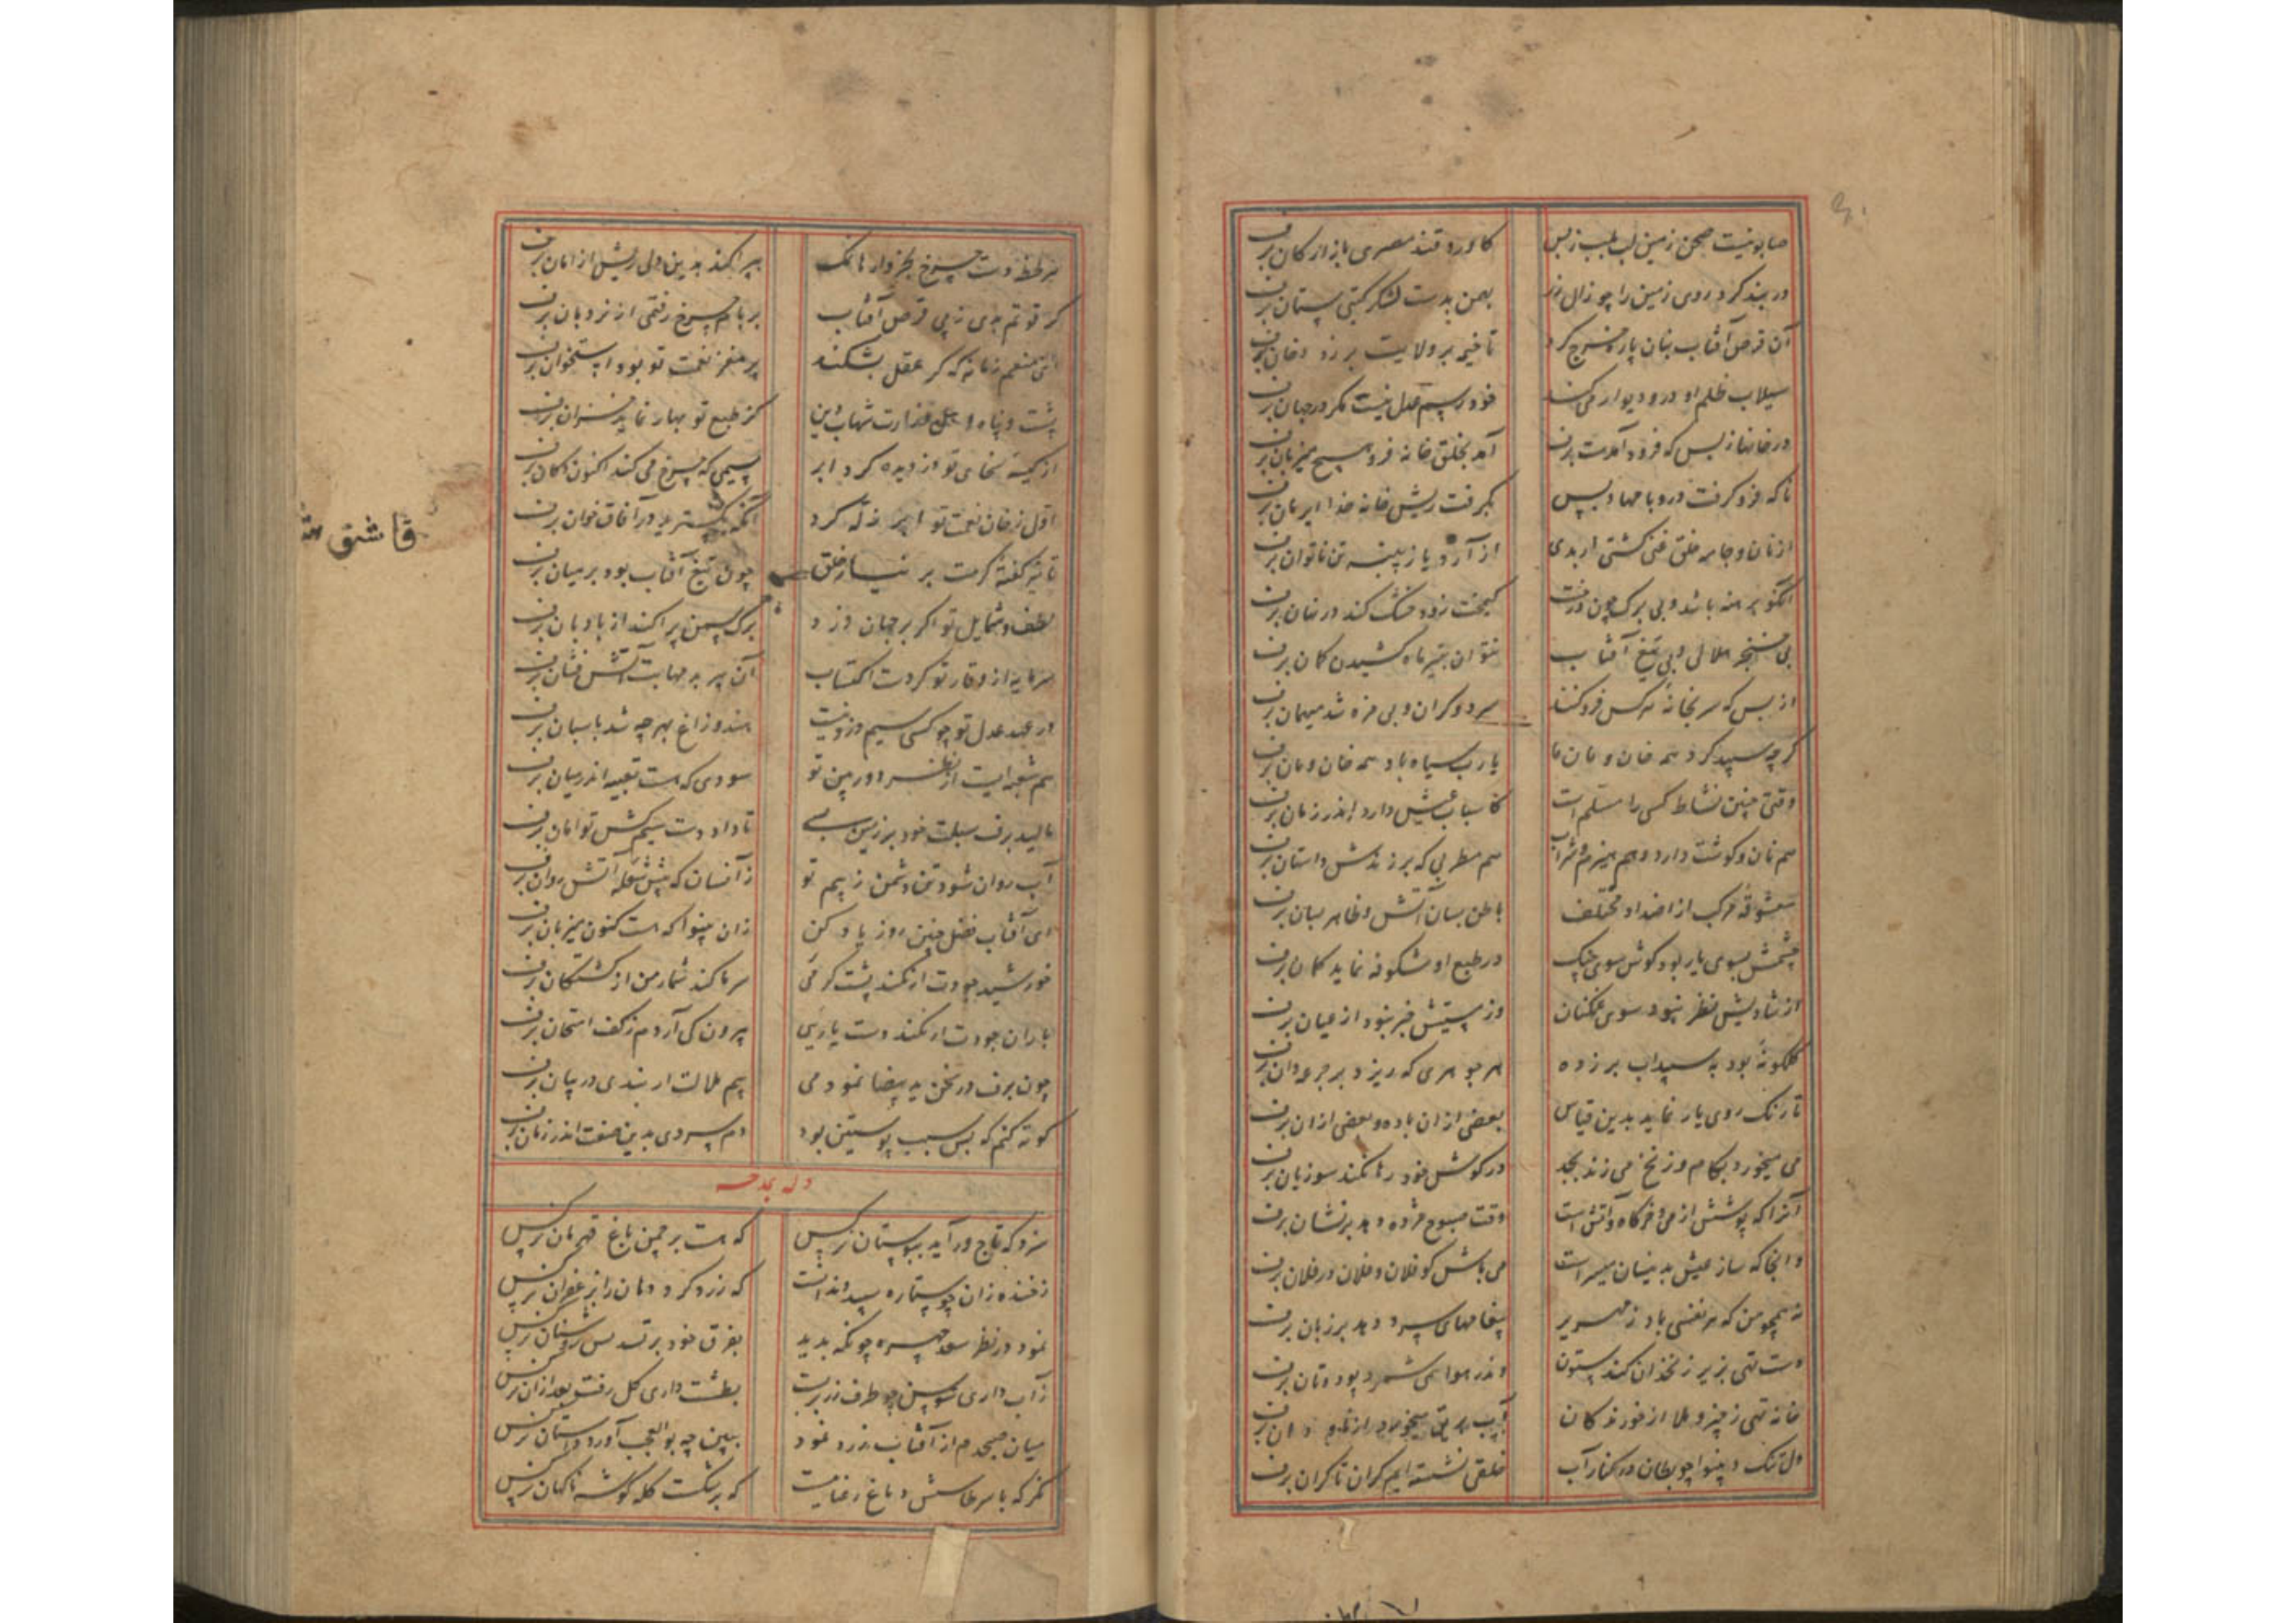 صابونیست صحن زمین لب بلب زبس کاورد قند مصری بازارکان برف
در پنبه کرد روی زمین را چو زال زر بهمن بدست لشکر گیتی ستان برف
آن قرص آفتاب بنان پاره خرج کرد تا خیمه بر ولایت برزد دخان برف
سیلاب ظلم او در و دیوار می کند خود رسم عدل نیست مکر در جهان برف
در خانها ز بس که فرود آمدست برف آمد بحلق خانه فرو میزبان برف
تا که فرو کرفت در و بامها و بس بگرفت ریش خانه خدا ایرمان برف
از نان و جامه خلق غنی کشتی ار بدی از آرد یا ز پنبه تن ناتوان برف
آنکو برهنه باشد و بی برک چون درخت کیمخت زود خشک کند در نهان برف
بی خنجر هلالی و بی تیغ آفتاب نتوان بتیر ماه کشیدن کمان برف
از بس که سر بخانه هر کس فرو کند سرد و کران و بی مزه شد میهمان برف
کرچه سپید کرد همه خان و مان ما یا رب سیاه باد همه خان و مان برف
وقتی چنین نشاط کسی را مسلم است کاسباب عیش دارد اندر زمان برف
هم نان و کوشت دارد و هم هیزم و شراب هم مطربی که برزندش داستان برف
معشوقه مرکب از اضداد مختلف باطن بسان آتش و ظاهر بسان برف
چشمش بسوی یار بود کوش سوی چنک در طبع او شکوفه نماید کمان برف
از شادیش نظر نبود سوی غمکنان وز مستیش خبر نبود از عیان برف
کلکونه بود به سپیداب برزده هر جوهری که ریزد بر جرعه دان برف
تا رنک روی یار نماید بدین قیاس بعضی از آن باده و بعضی از آن برف
می میخورد بکام و زنخ می زند بجد در کوشش خود رها نکند سوزیان برف
آنرا که پوشش از می و خرکاه و آتش است وقت صبوح مژده دهد بر نشان برف
وانجا که ساز عیش بدینسان میسر است می باش کو فلان و فلان در فلان برف
نه همچو من که هر نفسی باد زمهریر پیغامهای سرد دهد بر زبان برف
دست تهی بزیر زنخدان کند ستون وندر هوا همی شمرد پود و تان برف
خانه تهی ز چیز و ملا از خورندکان
دل تنک و بینوا چو بطان در کنار آب خلقی نشسته ایم کران تا کران برف
هر لحظه دست چرخ بخروارها نمک بپراکند بدین دلی ریش از امان برف
کر قوتم بدی ز پی قرص آفتاب بر بام چرخ رفتمی از نردبان برف
ای منعم زمانه که کر عقل بشکند پر مغز نعمت تو بود استخوان برف
پشت و پناه و اهل وزارت شهاب دین کز طبع تو بهار نماید خزان برف
از کیسه سخای تو ازدیده کرد ابر سیمی که خرج می کند اکنون دکان برف
اول ز خوان نعمت تو ابر زله کرد آنکه بکسترید در آفاق خوان برف
چون تیغ آفتاب بود بر میان برف
لطف و شمایل تو اکر بر جهان وزد برک سمن پراکند از بادبان برف
سرمایه از وقار تو کردست اکتساب آن پیر بد مهابت آتش فشان برف
در عهد عدل تو چو کسی سیم دزد نیست هندو زاغ بهر چه شد پاسبان برف
هم شعبه ایست از نظر دوربین تو سودی که هست تعبیه اندر میان برف
مالید برف سبلت خود بر زمین بسی تا داد دست سیم کش تو امان برف
آب روان شود تن دشمن ز بیم تو زآنسان که پیش شعله آتش روان برف
ای آفتاب فضل چنین روز یاد کن زان بینوا که هست کنون میزبان برف
خورشید جودت ار نکند پشت کرمی سرما کند شمار من از کشتکان برف
باران جودت ار نکند دست یاریی بیرون کی آردم ز کف امتحان برف
چون برف در سخن ید بیضا نمودمی بیم ملالت ار نبدی در بیان برف
کوته کنم که بس سبب پوستین بود دم سردی بدین صفت اندر زمان برف
وله یمدحه
سزد که تاج ور آید ببوستان نرکس که هست بر چمن باغ قهرمان نرکس
ز خنده زان چو ستاره سپید دندانست که زرد کرد دهان را بزعفران نرکس
نمود در نظر سعد چهره چونکه بدید بفرق خود بر تسدیس روشنان نرکس
ز آب داری سوسن چو طرف زر بربست بطشت داری کل رفت بعد از آن نرکس
میان صبحدم از آفتاب زرد نمود ببین چه بوالعجب آورد داستان نرکس
مکر که با سر طاسش دماغ رعناییست که برشکست کله کوشه ناکهان نرکس
قاشق